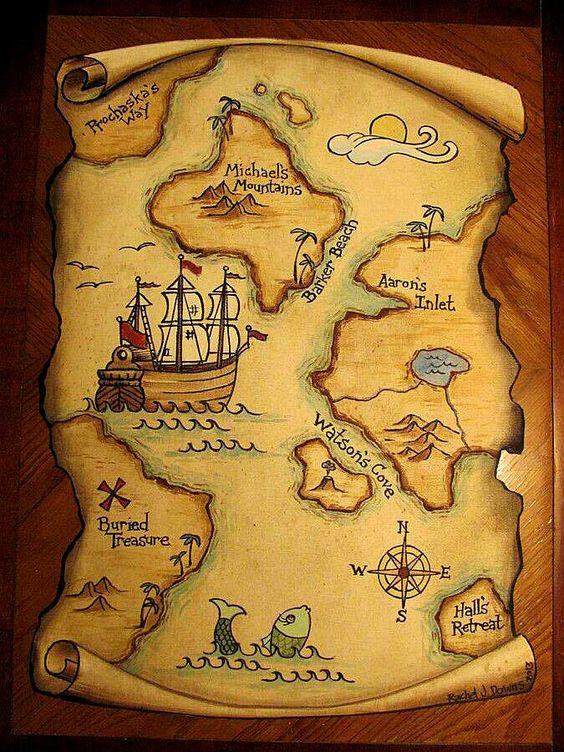 Prochaska's
Way
Michael's
Mountains
Barker Beach
Aaron's
Inlet
Watson's Cove
Buried
Treasure
N
W
E
S
Hall's
Retreat
Rachel J. Downs
2013